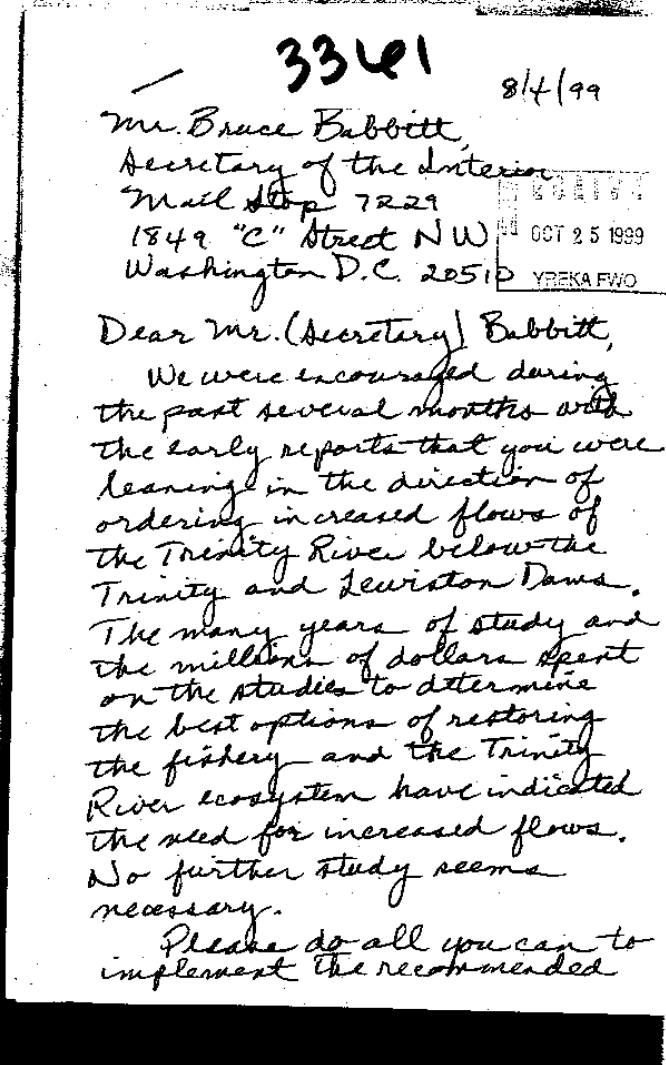 3361
8/4/99
Mr. Bruce Babbitt,
Secretary of the Interior
Mail Stop 7229
1849 "C" Street NW
OCT 25 1999
Washington D.C. 20510
YREKA FWO
Dear Mr. (Secretary) Babbitt,
We were encouraged during
the past several months with
the early reports that you were
leaning in the direction of
ordering increased flows of
the Trinity River below the
Trinity and Lewiston Dams.
The many years of study and
the millions of dollars spent
on the studies to determine
the best options of restoring
the fishery and the Trinity
River ecosystem have indicated
the need for increased flows.
No further study seems
necessary.
Please do all you can to
implement the recommended